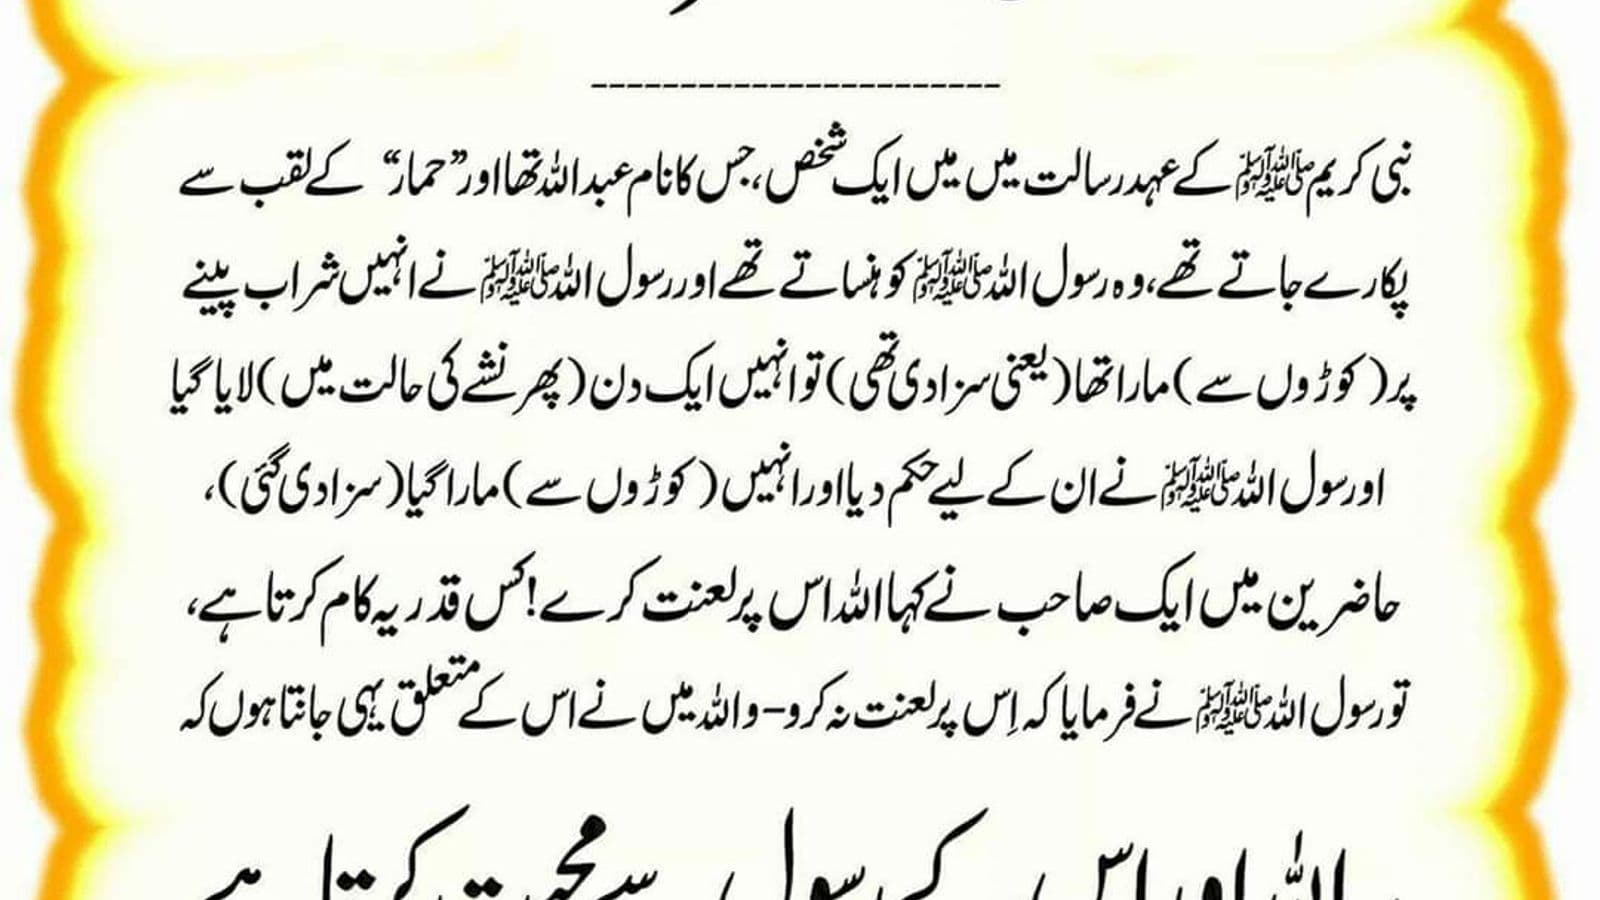 -----------------------
نبی کریم ﷺ کے عہد رسالت میں میں ایک شخص، جس کا نام عبد اللہ تھا اور ”حمار“ کے لقب سے
پکارے جاتے تھے، وہ رسول اللہ ﷺ کو ہنساتے تھے اور رسول اللہ ﷺ نے انہیں شراب پینے
پر (کوڑوں سے) مارا تھا (یعنی سزا دی تھی) تو انہیں ایک دن (پھر نشے کی حالت میں) لایا گیا
اور سول اللہ ﷺ نے ان کے لیے حکم دیا اور انہیں (کوڑوں سے) مارا گیا (سزا دی گئی)،
حاضرین میں ایک صاحب نے کہا اللہ اس پر لعنت کرے! کس قدر یہ کام کرتا ہے،
تو رسول اللہ ﷺ نے فرمایا کہ اِس پر لعنت نہ کرو- واللہ میں نے اس کے متعلق یہی جانتا ہوں کہ
اللہ اور اس کے رسول سے محبت کرتا ہے